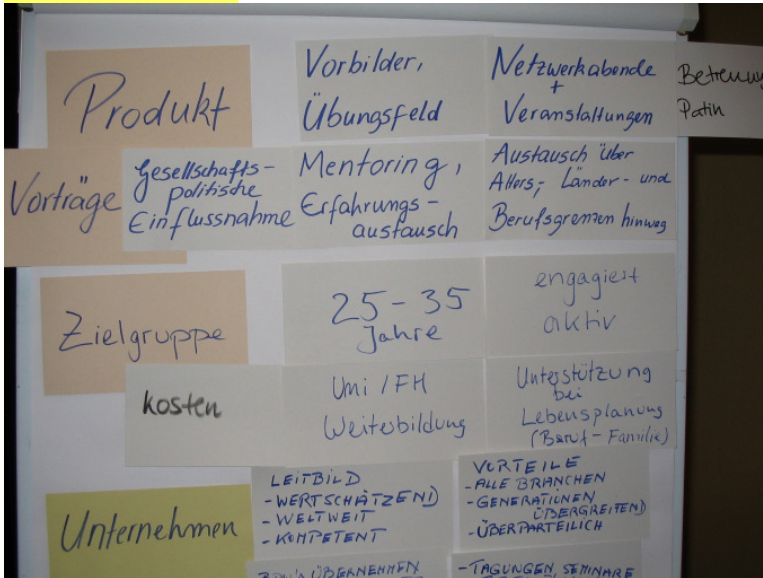 Produkt
Vorbilder,
Übungsfeld
Netzwerkabende
+
Veranstaltungen
Betreuung
Patin
Vorträge
Gesellschafts-
politische
Einflussnahme
Mentoring,
Erfahrungs-
austausch
Austausch über
Alters-, Länder- und
Berufsgrenzen hinweg
Zielgruppe
25-35
Jahre
engagiert
aktiv
Kosten
Uni / FH
Weiterbildung
Unterstützung
bei
Lebensplanung
(Beruf - Familie)
Unternehmen
LEITBILD
- WERTSCHÄTZEND
- WELTWEIT
- KOMPETENT
VORTEILE
- ALLE BRANCHEN
- GENERATIONEN
ÜBERGREIFEND
- ÜBERPARTEILICH
ÜBERNEHMEN
- TAGUNGEN, SEMINARE